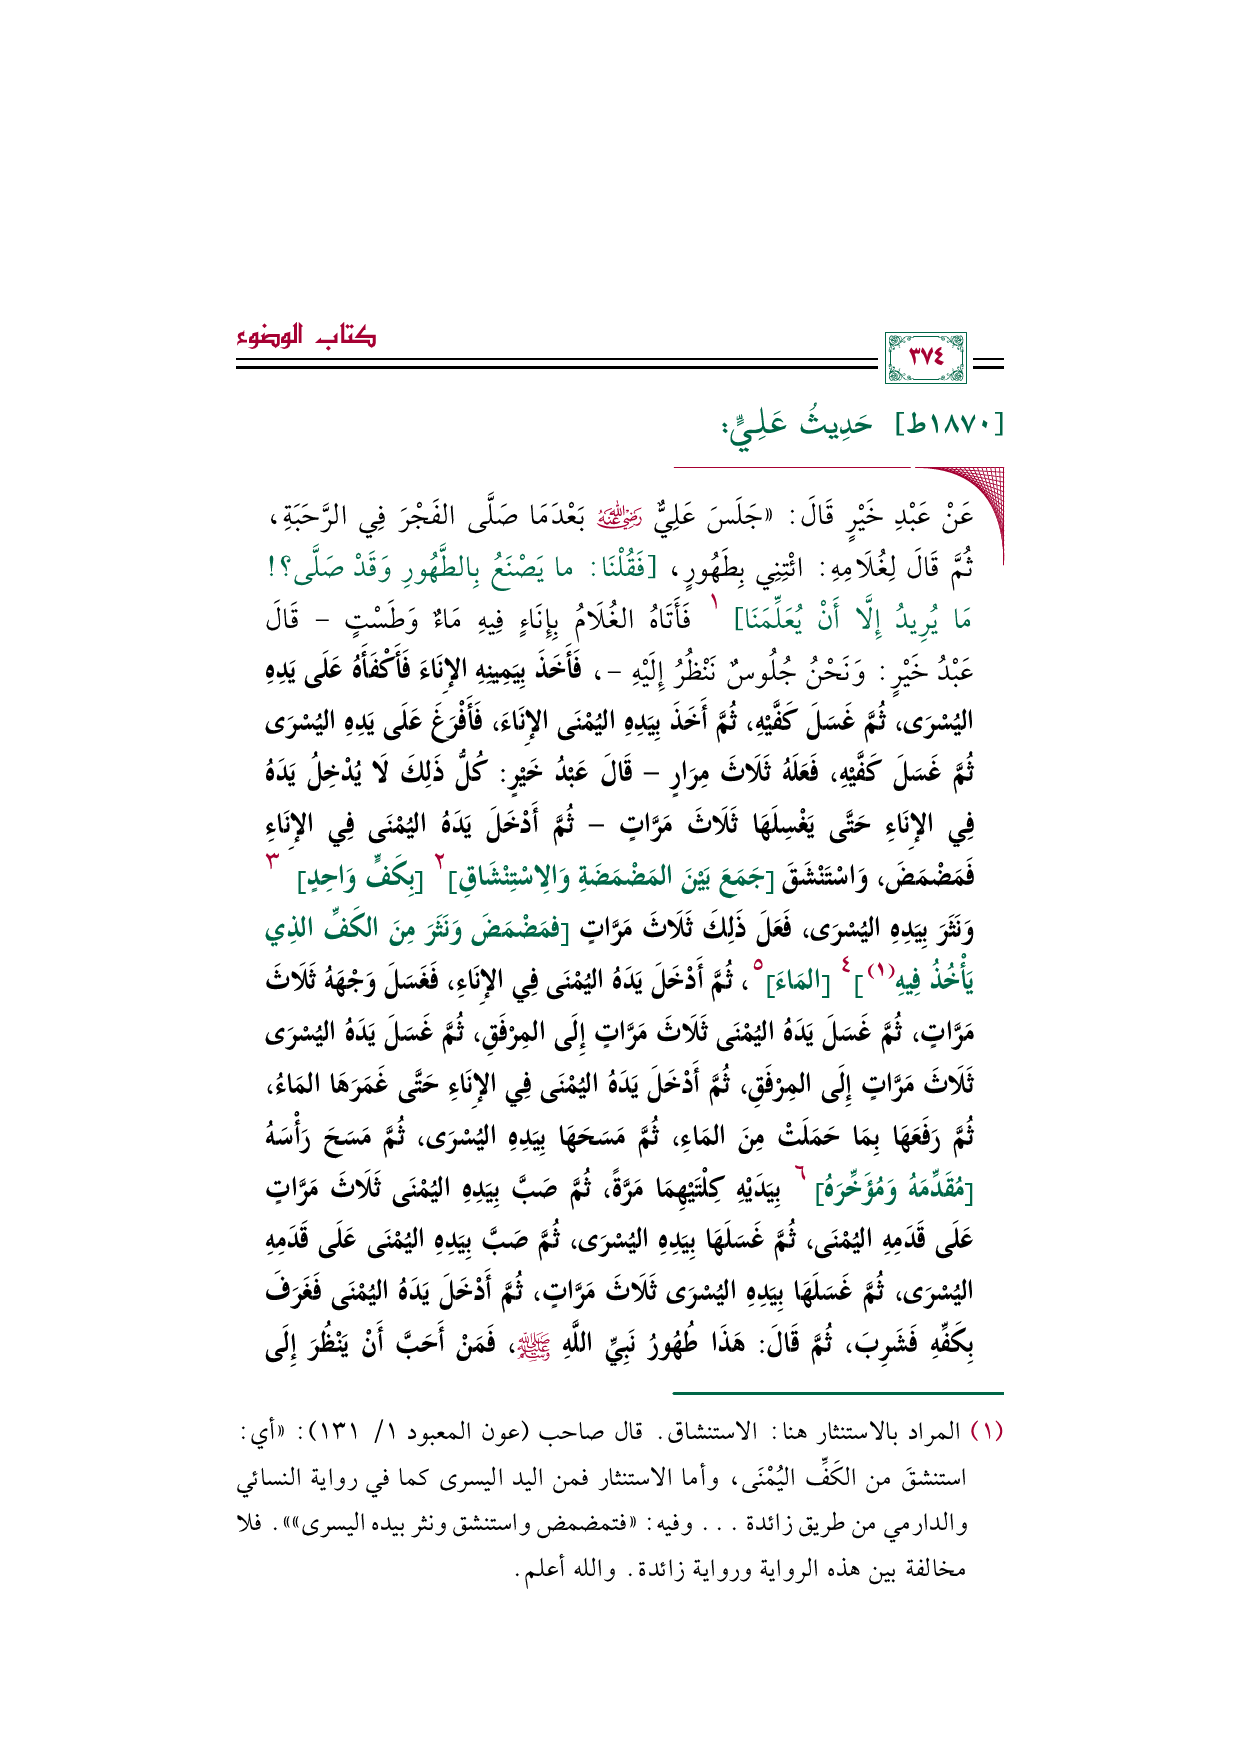 كتاب الوضوء
٣٧٤
[١٨٧٠ط] حَدِيثُ عَلِيٍّ:
عَنْ عَبْدِ خَيْرٍ قَالَ: «جَلَسَ عَلِيٌّ رضي الله عنه بَعْدَمَا صَلَّى الفَجْرَ فِي الرَّحَبَةِ،
ثُمَّ قَالَ لِغُلَامِهِ: ائْتِنِي بِطَهُورٍ، [فَقُلْنَا: ما يَصْنَعُ بِالطَّهُورِ وَقَدْ صَلَّى؟!
مَا يُرِيدُ إِلَّا أَنْ يُعَلِّمَنَا]١ فَأَتَاهُ الغُلَامُ بِإِنَاءٍ فِيهِ مَاءٌ وَطَسْتٍ – قَالَ
عَبْدُ خَيْرٍ: وَنَحْنُ جُلُوسٌ نَنْظُرُ إِلَيْهِ –، فَأَخَذَ بِيَمِينِهِ الإِنَاءَ فَأَكْفَأَهُ عَلَى يَدِهِ
اليُسْرَى، ثُمَّ غَسَلَ كَفَّيْهِ، ثُمَّ أَخَذَ بِيَدِهِ اليُمْنَى الإِنَاءَ، فَأَفْرَغَ عَلَى يَدِهِ اليُسْرَى
ثُمَّ غَسَلَ كَفَّيْهِ، فَعَلَهُ ثَلَاثَ مِرَارٍ – قَالَ عَبْدُ خَيْرٍ: كُلُّ ذَلِكَ لَا يُدْخِلُ يَدَهُ
فِي الإِنَاءِ حَتَّى يَغْسِلَهَا ثَلَاثَ مَرَّاتٍ – ثُمَّ أَدْخَلَ يَدَهُ اليُمْنَى فِي الإِنَاءِ
فَمَضْمَضَ، وَاسْتَنْشَقَ [جَمَعَ بَيْنَ المَضْمَضَةِ وَالِاسْتِنْشَاقِ]٢ [بِكَفٍّ وَاحِدٍ]٣
وَنَثَرَ بِيَدِهِ اليُسْرَى، فَعَلَ ذَلِكَ ثَلَاثَ مَرَّاتٍ [فمَضْمَضَ وَنَثَرَ مِنَ الكَفِّ الذِي
يَأْخُذُ فِيهِ(١)]٤ [المَاءَ]٥، ثُمَّ أَدْخَلَ يَدَهُ اليُمْنَى فِي الإِنَاءِ، فَغَسَلَ وَجْهَهُ ثَلَاثَ
مَرَّاتٍ، ثُمَّ غَسَلَ يَدَهُ اليُمْنَى ثَلَاثَ مَرَّاتٍ إِلَى المِرْفَقِ، ثُمَّ غَسَلَ يَدَهُ اليُسْرَى
ثَلَاثَ مَرَّاتٍ إِلَى المِرْفَقِ، ثُمَّ أَدْخَلَ يَدَهُ اليُمْنَى فِي الإِنَاءِ حَتَّى غَمَرَهَا المَاءُ،
ثُمَّ رَفَعَهَا بِمَا حَمَلَتْ مِنَ المَاءِ، ثُمَّ مَسَحَهَا بِيَدِهِ اليُسْرَى، ثُمَّ مَسَحَ رَأْسَهُ
[مُقَدِّمَهُ وَمُؤَخِّرَهُ]٦ بِيَدَيْهِ كِلْتَيْهِمَا مَرَّةً، ثُمَّ صَبَّ بِيَدِهِ اليُمْنَى ثَلَاثَ مَرَّاتٍ
عَلَى قَدَمِهِ اليُمْنَى، ثُمَّ غَسَلَهَا بِيَدِهِ اليُسْرَى، ثُمَّ صَبَّ بِيَدِهِ اليُمْنَى عَلَى قَدَمِهِ
اليُسْرَى، ثُمَّ غَسَلَهَا بِيَدِهِ اليُسْرَى ثَلَاثَ مَرَّاتٍ، ثُمَّ أَدْخَلَ يَدَهُ اليُمْنَى فَغَرَفَ
بِكَفِّهِ فَشَرِبَ، ثُمَّ قَالَ: هَذَا طُهُورُ نَبِيِّ اللَّهِ ﷺ، فَمَنْ أَحَبَّ أَنْ يَنْظُرَ إِلَى
(١) المراد بالاستنثار هنا: الاستنشاق. قال صاحب (عون المعبود ١/ ١٣١): «أي:
استنشقَ من الكَفِّ اليُمْنَى، وأما الاستنثار فمن اليد اليسرى كما في رواية النسائي
والدارمي من طريق زائدة ... وفيه: «فتمضمض واستنشق ونثر بيده اليسرى»». فلا
مخالفة بين هذه الرواية ورواية زائدة. والله أعلم.